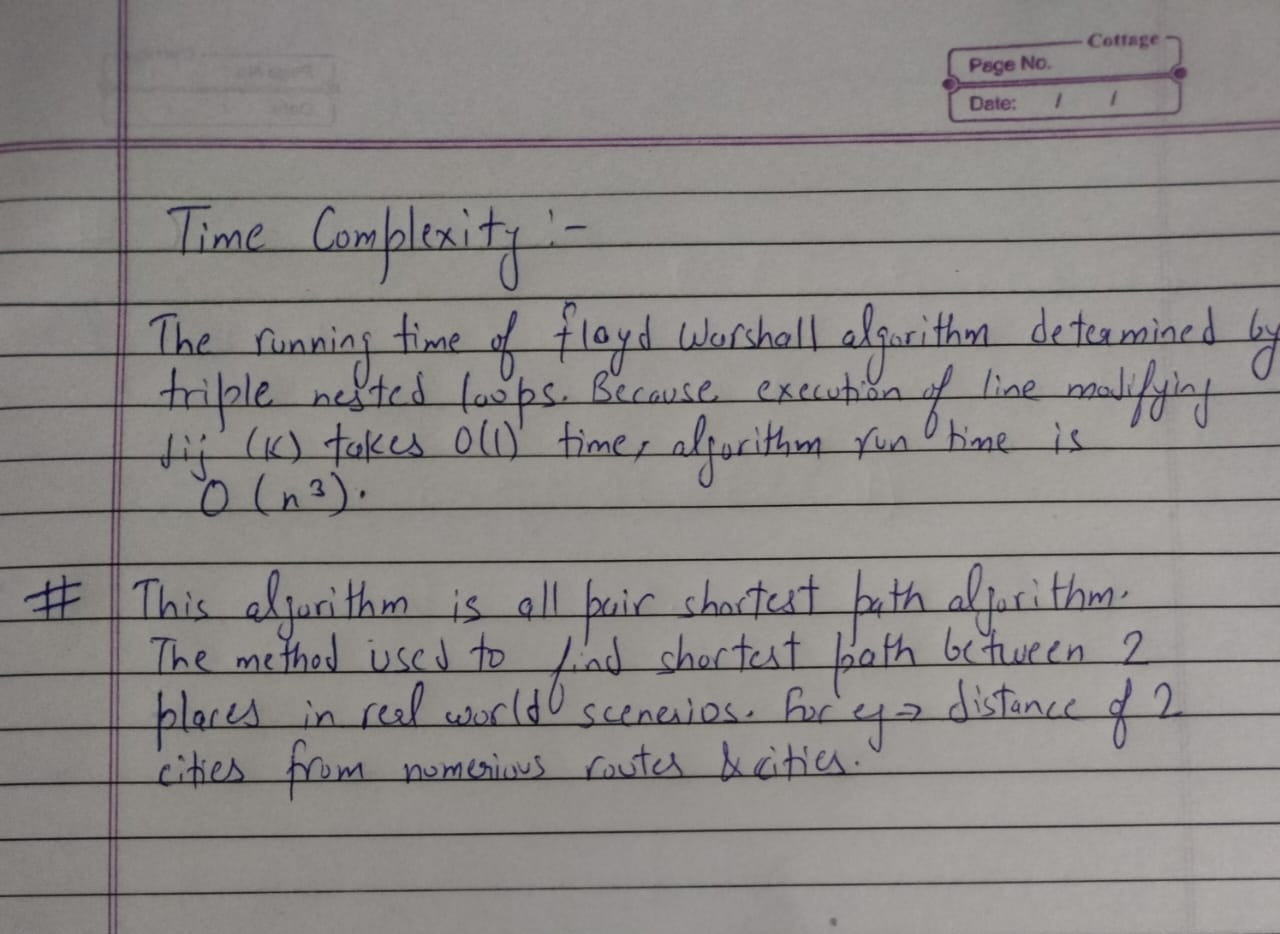 Cottage
Page No.
Date: / /
Time Complexity :-
The running time of floyd Warshall algorithm determined by
triple nested loops. Because execution of line modifying
dij (K) takes O(1) time, algorithm run time is
O (n³).
# This algorithm is all pair shortest path algorithm.
The method used to find shortest path between 2
places in real world scenerios. For eg → distance of 2
cities from numerious routes & cities.